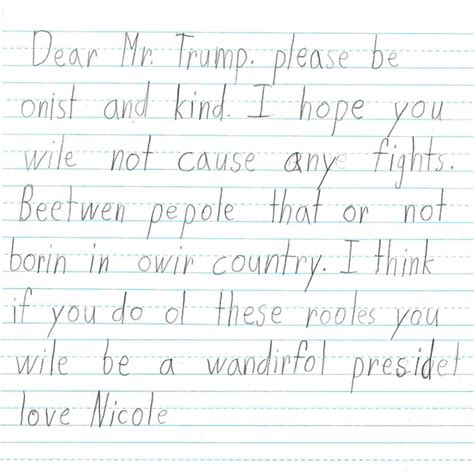 Dear Mr. Trump. please be
onist and kind. I hope you
wile not cause anye fights.
Beetwen pepole that or not
borin in owir country. I think
if you do ol these rooles you
wile be a wandirfol presidet
love Nicole